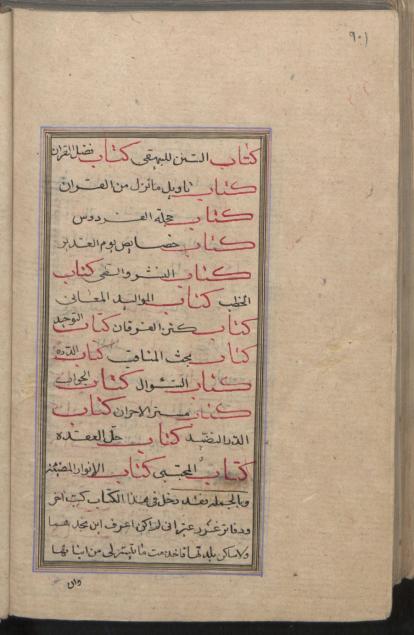 ٩٠١
كتاب السنن للبيهقي كتاب فضل القران
كتاب تاويل ما نزل من القران
كتاب حجلة الفردوس
كتاب خصايص يوم الغدير
كتاب البشر والسقى كتاب
الخطب كتاب المواليد المغانى
كتاب كنز الفرقان كتاب التوحيد
كتاب بحث المناقب كتاب
كتاب السؤال كتاب الجواب
كتاب مسير الاحزان كتاب
الدر النضيد كتاب حل العقده
كتاب المجتبى كتاب الانوار المضيئه
وبالجملة فقد دخل فى هذا الكتاب كتب اخر
ودفاتر غير انى لم اكن اعرف ابن بجدتها
ولا ساكن بلدتها فاخذت ما تيسر لى من ابنائها
وان